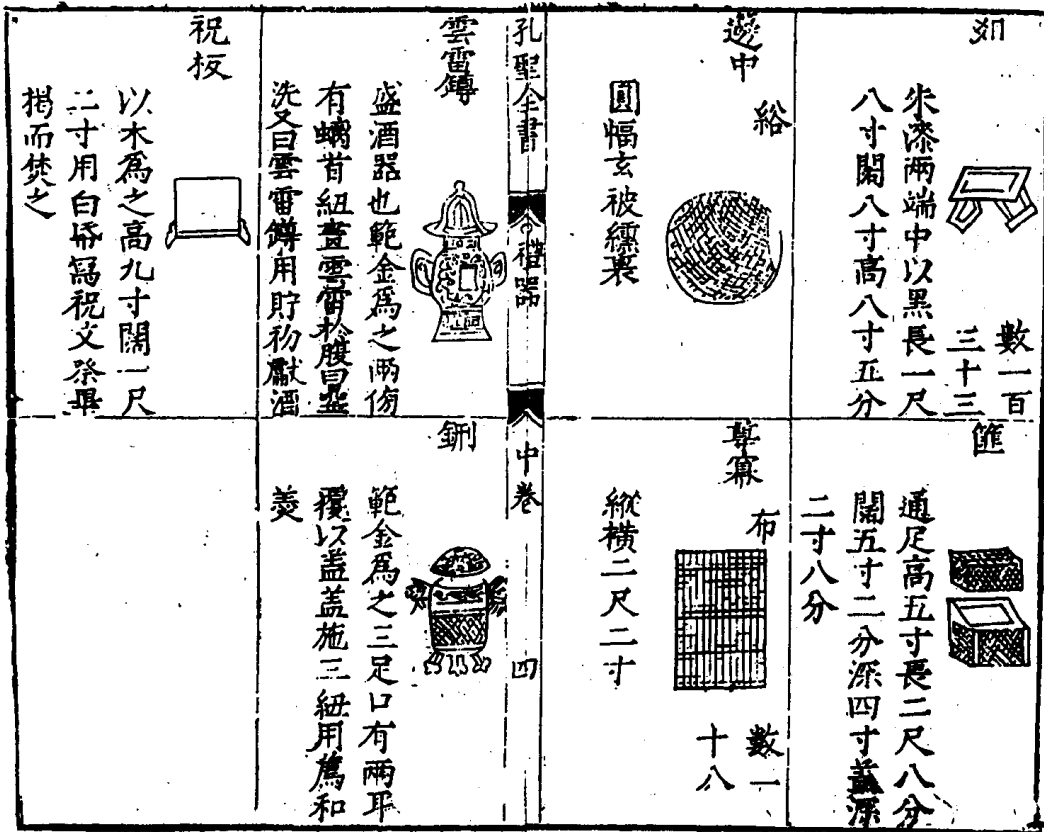 俎
朱漆兩端中以黑長一尺
八寸闊八寸高八寸五分
數一百
三十三
篚
通足高五寸長二尺八分
闊五寸二分深四寸蓋深
二寸八分
籩巾
綌
圓幅玄被纁裏
尊冪
布
縱橫二尺二寸
數一
十八
孔聖全書
禮器
中卷
四
雲雷罇
盛酒器也範金爲之兩傍
有螭首紐畫雲雷於腹曰
洗又曰雲雷罇用貯初獻酒
鉶
範金爲之三足口有兩耳
覆以盖盖施三紐用薦和
羮
祝板
以木爲之高九寸闊一尺
二寸用白帋寫祝文祭畢
揭而焚之